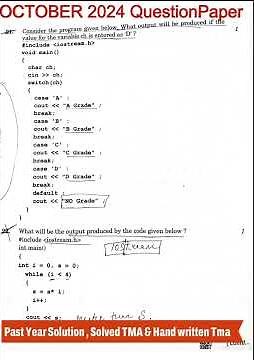 OCTOBER 2024 QuestionPaper
21. Consider the program given below. What output will be produced if the 1
value for the variable ch is entered as 'D' ?
#include <iostream.h>
void main()
{
char ch;
cin >> ch;
switch(ch)
{
case 'A' :
cout << "A Grade" ;
break;
case 'B' :
cout << "B Grade" ;
break;
case 'C' :
cout << "C Grade" ;
break;
case 'D' :
cout << "D Grade" ;
break;
default :
cout << "NO Grade" ;
}
}
22. What will be the output produced by the code given below ? 1
#include <iostream.h>
int main()
{
int i = 0, s = 0;
while (i < 4)
{
s = s* i;
i++;
}
cout << s;
Past Year Solution , Solved TMA & Hand written Tma